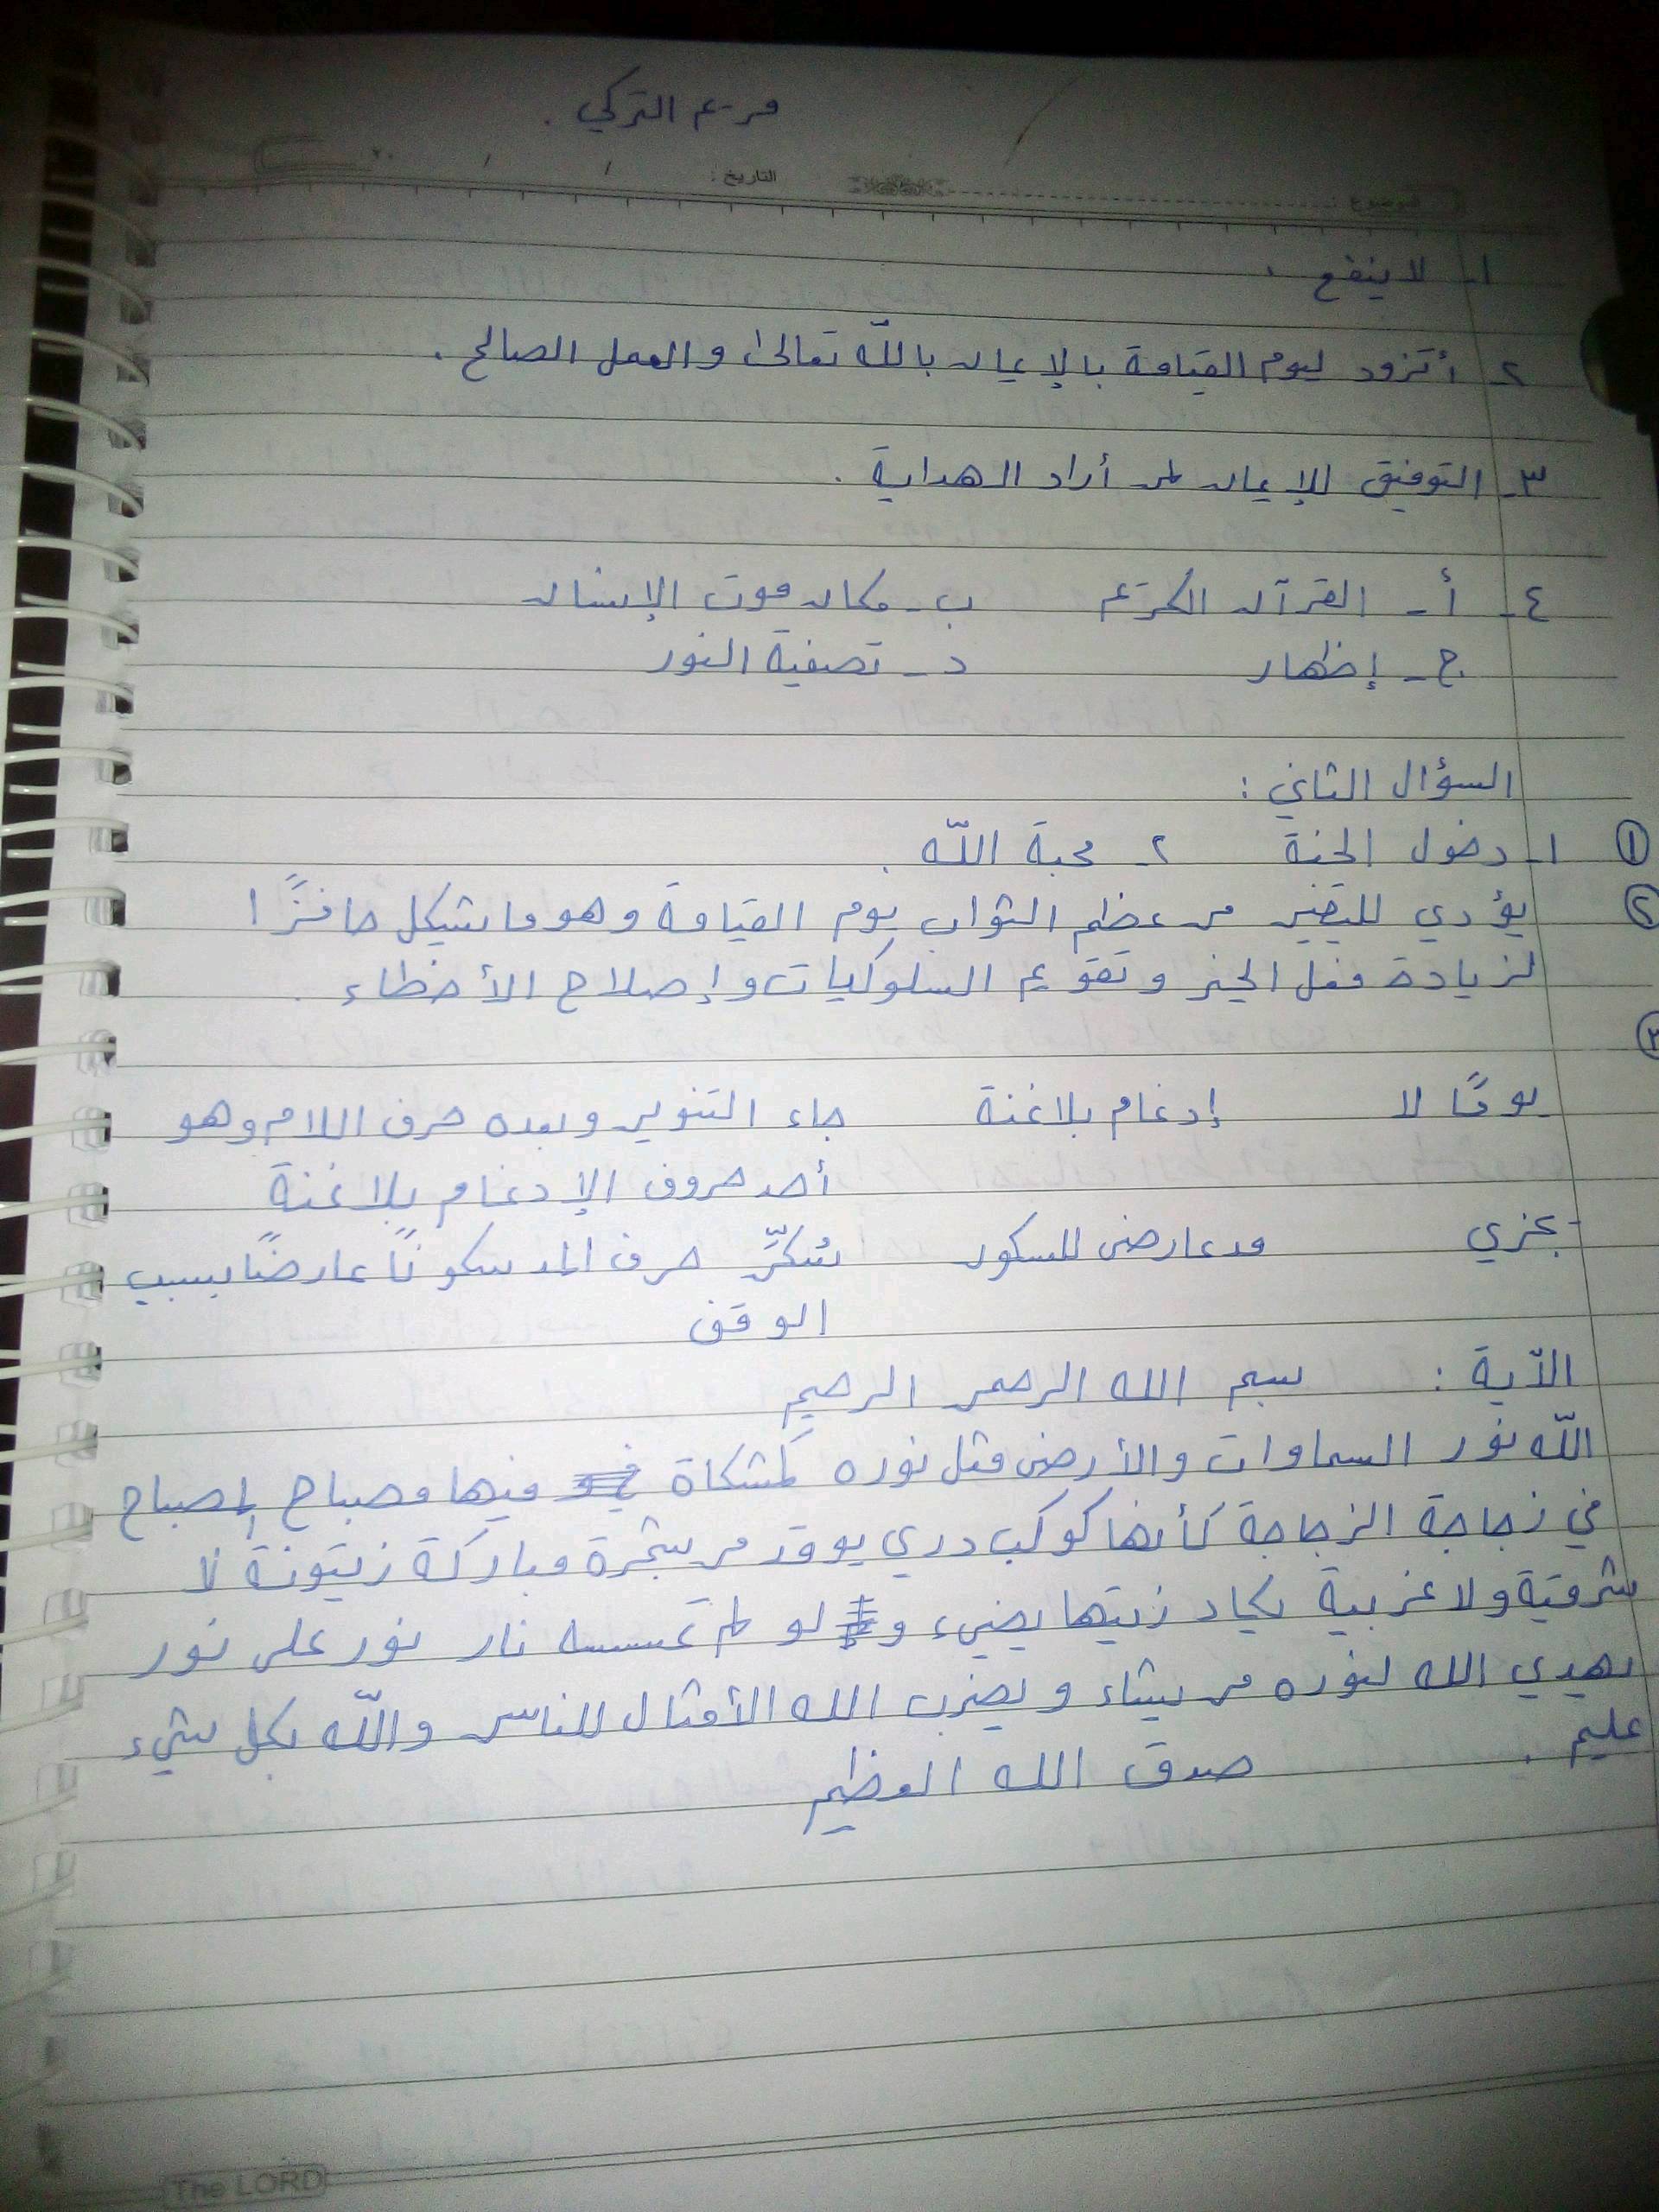 مريم التركي .
موضوع : التاريخ : / / ٢٠
١- لا ينفع .
٢- أتزود ليوم القيامة بالإيمان بالله تعالى والعمل الصالح .
٣- التوفيق للإيمان لمن أراد الهداية .
٤- أ- القرآن الكريم ب- مكان موت الإنسان
ج- إظهار د- تصفية النور
السؤال الثاني :
① ١- دخول الجنة ٢- محبة الله .
② يؤدي لليقين من عظم الثواب يوم القيامة وهو ما يشكل حافزًا
لزيادة فعل الخير وتقويم السلوكيات وإصلاح الأخطاء .
③
يومًا لا إدغام بلا غنة جاء التنوين وبعده حرف اللام وهو
أحد حروف الإدغام بلا غنة
- يجزي مد عارض للسكون حرف المد سكونًا عارضًا بسبب
الوقف
الآية : بسم الله الرحمن الرحيم
الله نور السماوات والأرض مثل نوره كمشكاة فيها مصباح المصباح
في زجاجة الزجاجة كأنها كوكب دري يوقد من شجرة مباركة زيتونة لا
شرقية ولا غربية يكاد زيتها يضيء و لو لم تمسسه نار نور على نور
يهدي الله لنوره من يشاء ويضرب الله الأمثال للناس والله بكل شيء
عليم .
صدق الله العظيم
The LORD